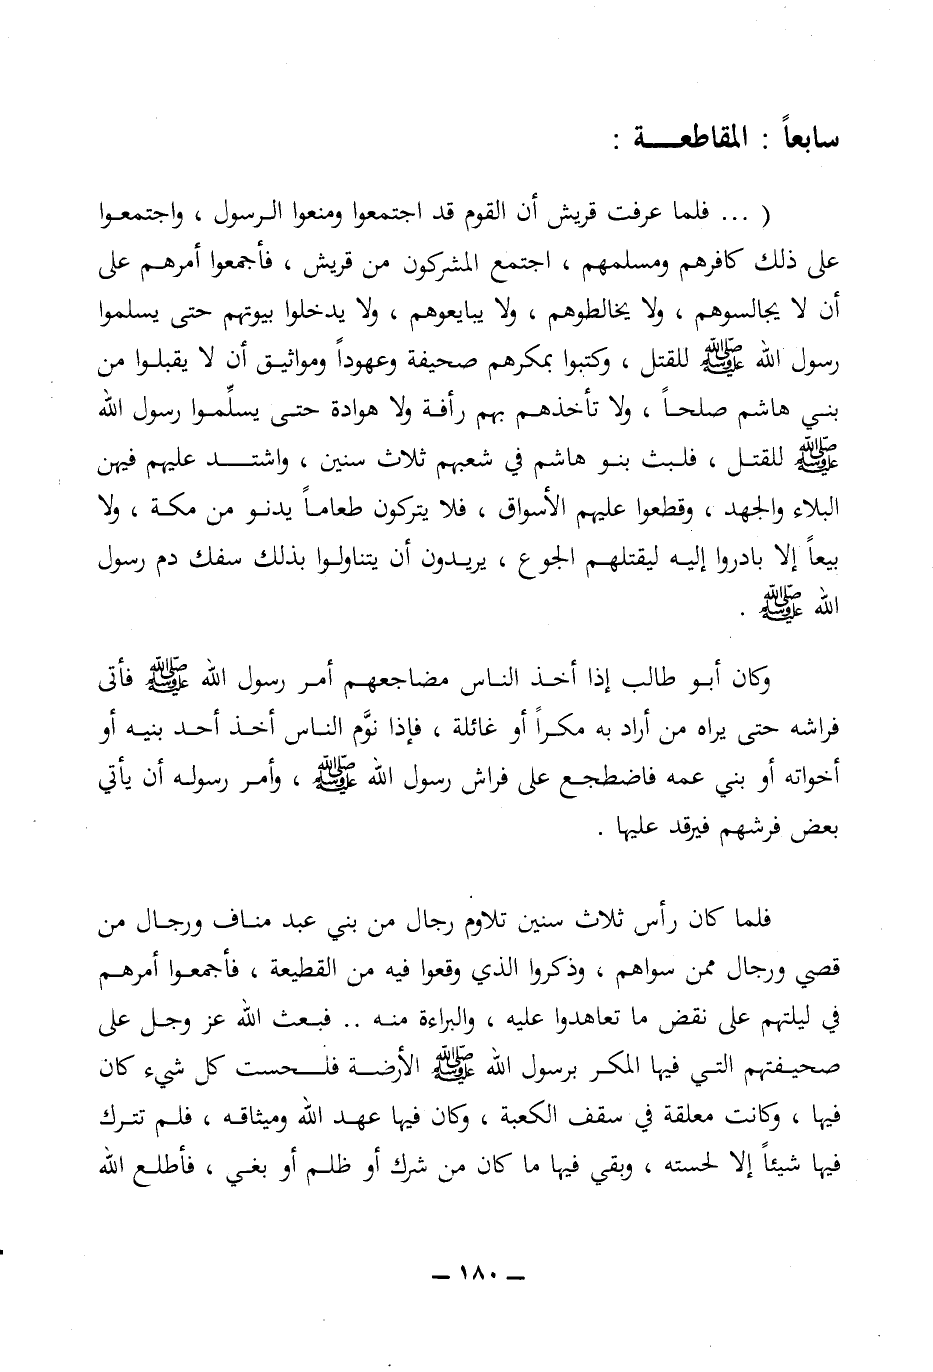 سابعاً : المقاطعـــة :
( ... فلما عرفت قريش أن القوم قد اجتمعوا ومنعوا الرسول ، واجتمعوا
على ذلك كافرهم ومسلمهم ، اجتمع المشركون من قريش ، فأجمعوا أمرهم على
أن لا يجالسوهم ، ولا يخالطوهم ، ولا يبايعوهم ، ولا يدخلوا بيوتهم حتى يسلموا
رسول الله ﷺ للقتل ، وكتبوا بمكرهم صحيفة وعهوداً ومواثيق أن لا يقبلوا من
بني هاشم صلحاً ، ولا تأخذهم بهم رأفة ولا هوادة حتى يسلِّموا رسول الله
ﷺ للقتل ، فلبث بنو هاشم في شعبهم ثلاث سنين ، واشتد عليهم فيهن
البلاء والجهد ، وقطعوا عليهم الأسواق ، فلا يتركون طعاماً يدنو من مكة ، ولا
بيعاً إلا بادروا إليه ليقتلهم الجوع ، يريدون أن يتناولوا بذلك سفك دم رسول
الله ﷺ .
وكان أبو طالب إذا أخذ الناس مضاجعهم أمر رسول الله ﷺ فأتى
فراشه حتى يراه من أراد به مكراً أو غائلة ، فإذا نوَّم الناس أخذ أحد بنيه أو
أخواته أو بني عمه فاضطجع على فراش رسول الله ﷺ ، وأمر رسوله أن يأتي
بعض فرشهم فيرقد عليها .
فلما كان رأس ثلاث سنين تلاوم رجال من بني عبد مناف ورجال من
قصي ورجال ممن سواهم ، وذكروا الذي وقعوا فيه من القطيعة ، فأجمعوا أمرهم
في ليلتهم على نقض ما تعاهدوا عليه ، والبراءة منه .. فبعث الله عز وجل على
صحيفتهم التي فيها المكر برسول الله ﷺ الأرضة فلحست كل شيء كان
فيها ، وكانت معلقة في سقف الكعبة ، وكان فيها عهد الله وميثاقه ، فلم تترك
فيها شيئاً إلا لحسته ، وبقي فيها ما كان من شرك أو ظلم أو بغي ، فأطلع الله
ــ ١٨٠ ــ